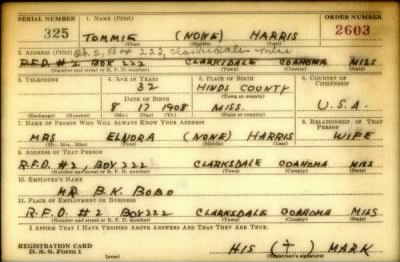 SERIAL NUMBER 1. NAME (Print) ORDER NUMBER
325 TOMMIE (NONE) HARRIS 2603
(First) (Middle) (Last)
2. ADDRESS (Print) 222, Clarksdale Miss
R.F.D. #2 BOX 222 CLARKSDALE COAHOMA MISS
(Number and street or R. F. D. number) (Town) (County) (State)
3. TELEPHONE 4. AGE IN YEARS 5. PLACE OF BIRTH 6. COUNTRY OF CITIZENSHIP
32 HINDS COUNTY
DATE OF BIRTH (Town or county)
8 17 1908 MISS. U.S.A.
(Exchange) (Number) (Mo.) (Day) (Yr.) (State or country)
7. NAME OF PERSON WHO WILL ALWAYS KNOW YOUR ADDRESS 8. RELATIONSHIP OF THAT PERSON
MRS ELNORA (NONE) HARRIS WIFE
(Mr., Mrs., Miss) (First) (Middle) (Last)
9. ADDRESS OF THAT PERSON
R.F.D. #2 BOX 222 CLARKSDALE COAHOMA MISS
(Number and street or R. F. D. number) (Town) (County) (State)
10. EMPLOYER'S NAME
MR. B.K. BOBO
11. PLACE OF EMPLOYMENT OR BUSINESS
R.F.D. #2 BOX 222 CLARKSDALE COAHOMA MISS
(Number and street or R. F. D. number) (Town) (County) (State)
I AFFIRM THAT I HAVE VERIFIED ABOVE ANSWERS AND THAT THEY ARE TRUE.
REGISTRATION CARD HIS (+) MARK
D. S. S. Form 1 (over) (Registrant's signature)